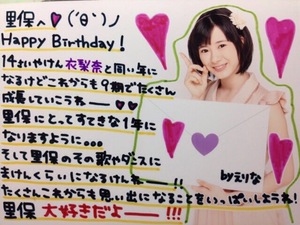 里保へ♡(´θ`)ノ
Happy Birthday!
14さいやけん衣梨奈と同い年に
なるけどこれからも9期でたくさん
成長していこうねー♡♡
里保にとってすてきな1年に
なりますように...
そして里保のその歌やダンスに
まけんくらいになるけんねー!!
たくさんこれからも思い出になることをいっぱいしようね!
里保 大好きだよー!!!
byえりな